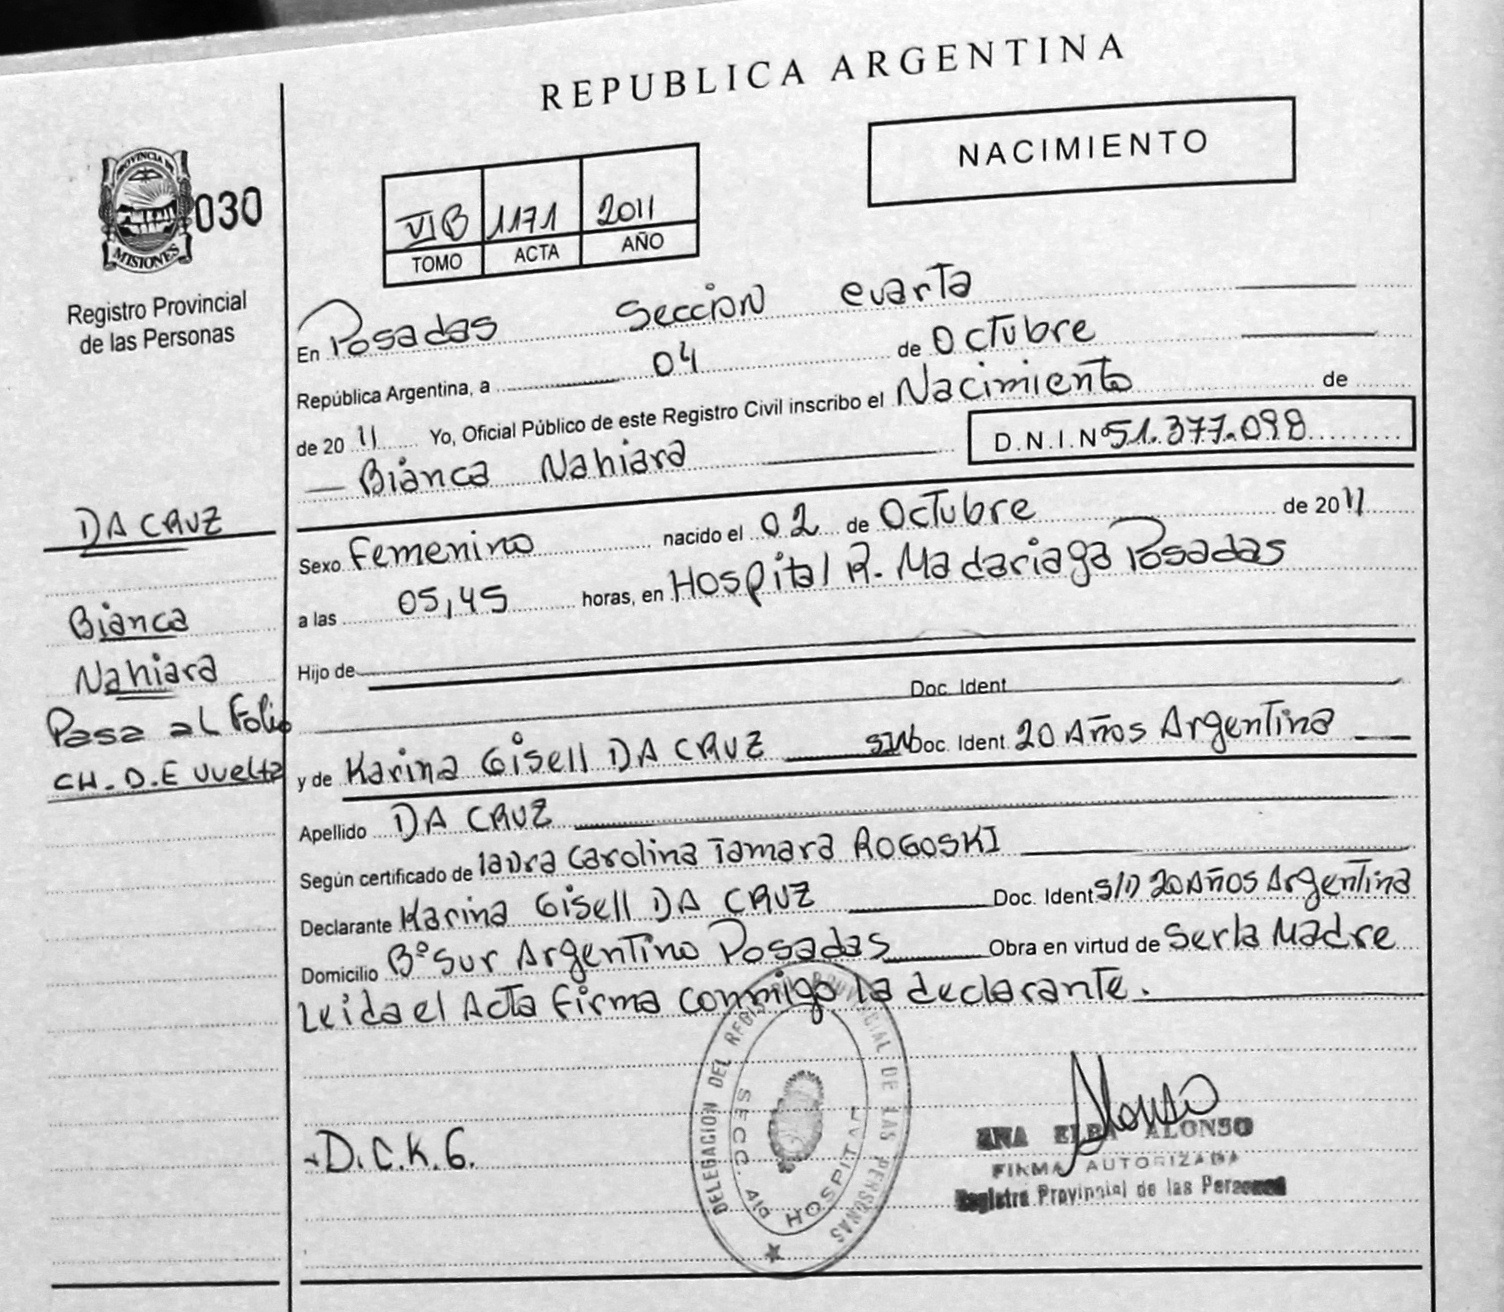 REPUBLICA ARGENTINA
NACIMIENTO
PROVINCIA DE
MISIONES
030
Registro Provincial
de las Personas
VIB 1171 2011
TOMO ACTA AÑO
En Posadas Seccion cuarta
República Argentina, a 04 de Octubre
de 2011 Yo, Oficial Público de este Registro Civil inscribo el Nacimiento de
Bianca Nahiara D.N.I.Nº51.377.098
DA CRUZ
Sexo Femenino nacido el 02 de Octubre de 2011
a las 05,45 horas, en Hospital R. Madariaga Posadas
Bianca
Nahiara
Pasa al Folio
CH.D.E vuelta
Hijo de
Doc. Ident
y de Karina Gisell DA CRUZ S/N Doc. Ident 20 Años Argentina
Apellido DA CRUZ
Según certificado de Laura Carolina Tamara ROGOSKI
Declarante Karina Gisell DA CRUZ Doc. Ident S/D 20 Años Argentina
Domicilio Bº Sur Argentino Posadas Obra en virtud de Ser la Madre
Leida el Acta firma conmigo la declarante.
DELEGACION DEL REGISTRO PROVINCIAL DE LAS PERSONAS
SECC. 4ta HOSPITAL
D.C.K.G.
Alonso
ANA ELBA ALONSO
FIRMA AUTORIZADA
Registro Provincial de las Personas